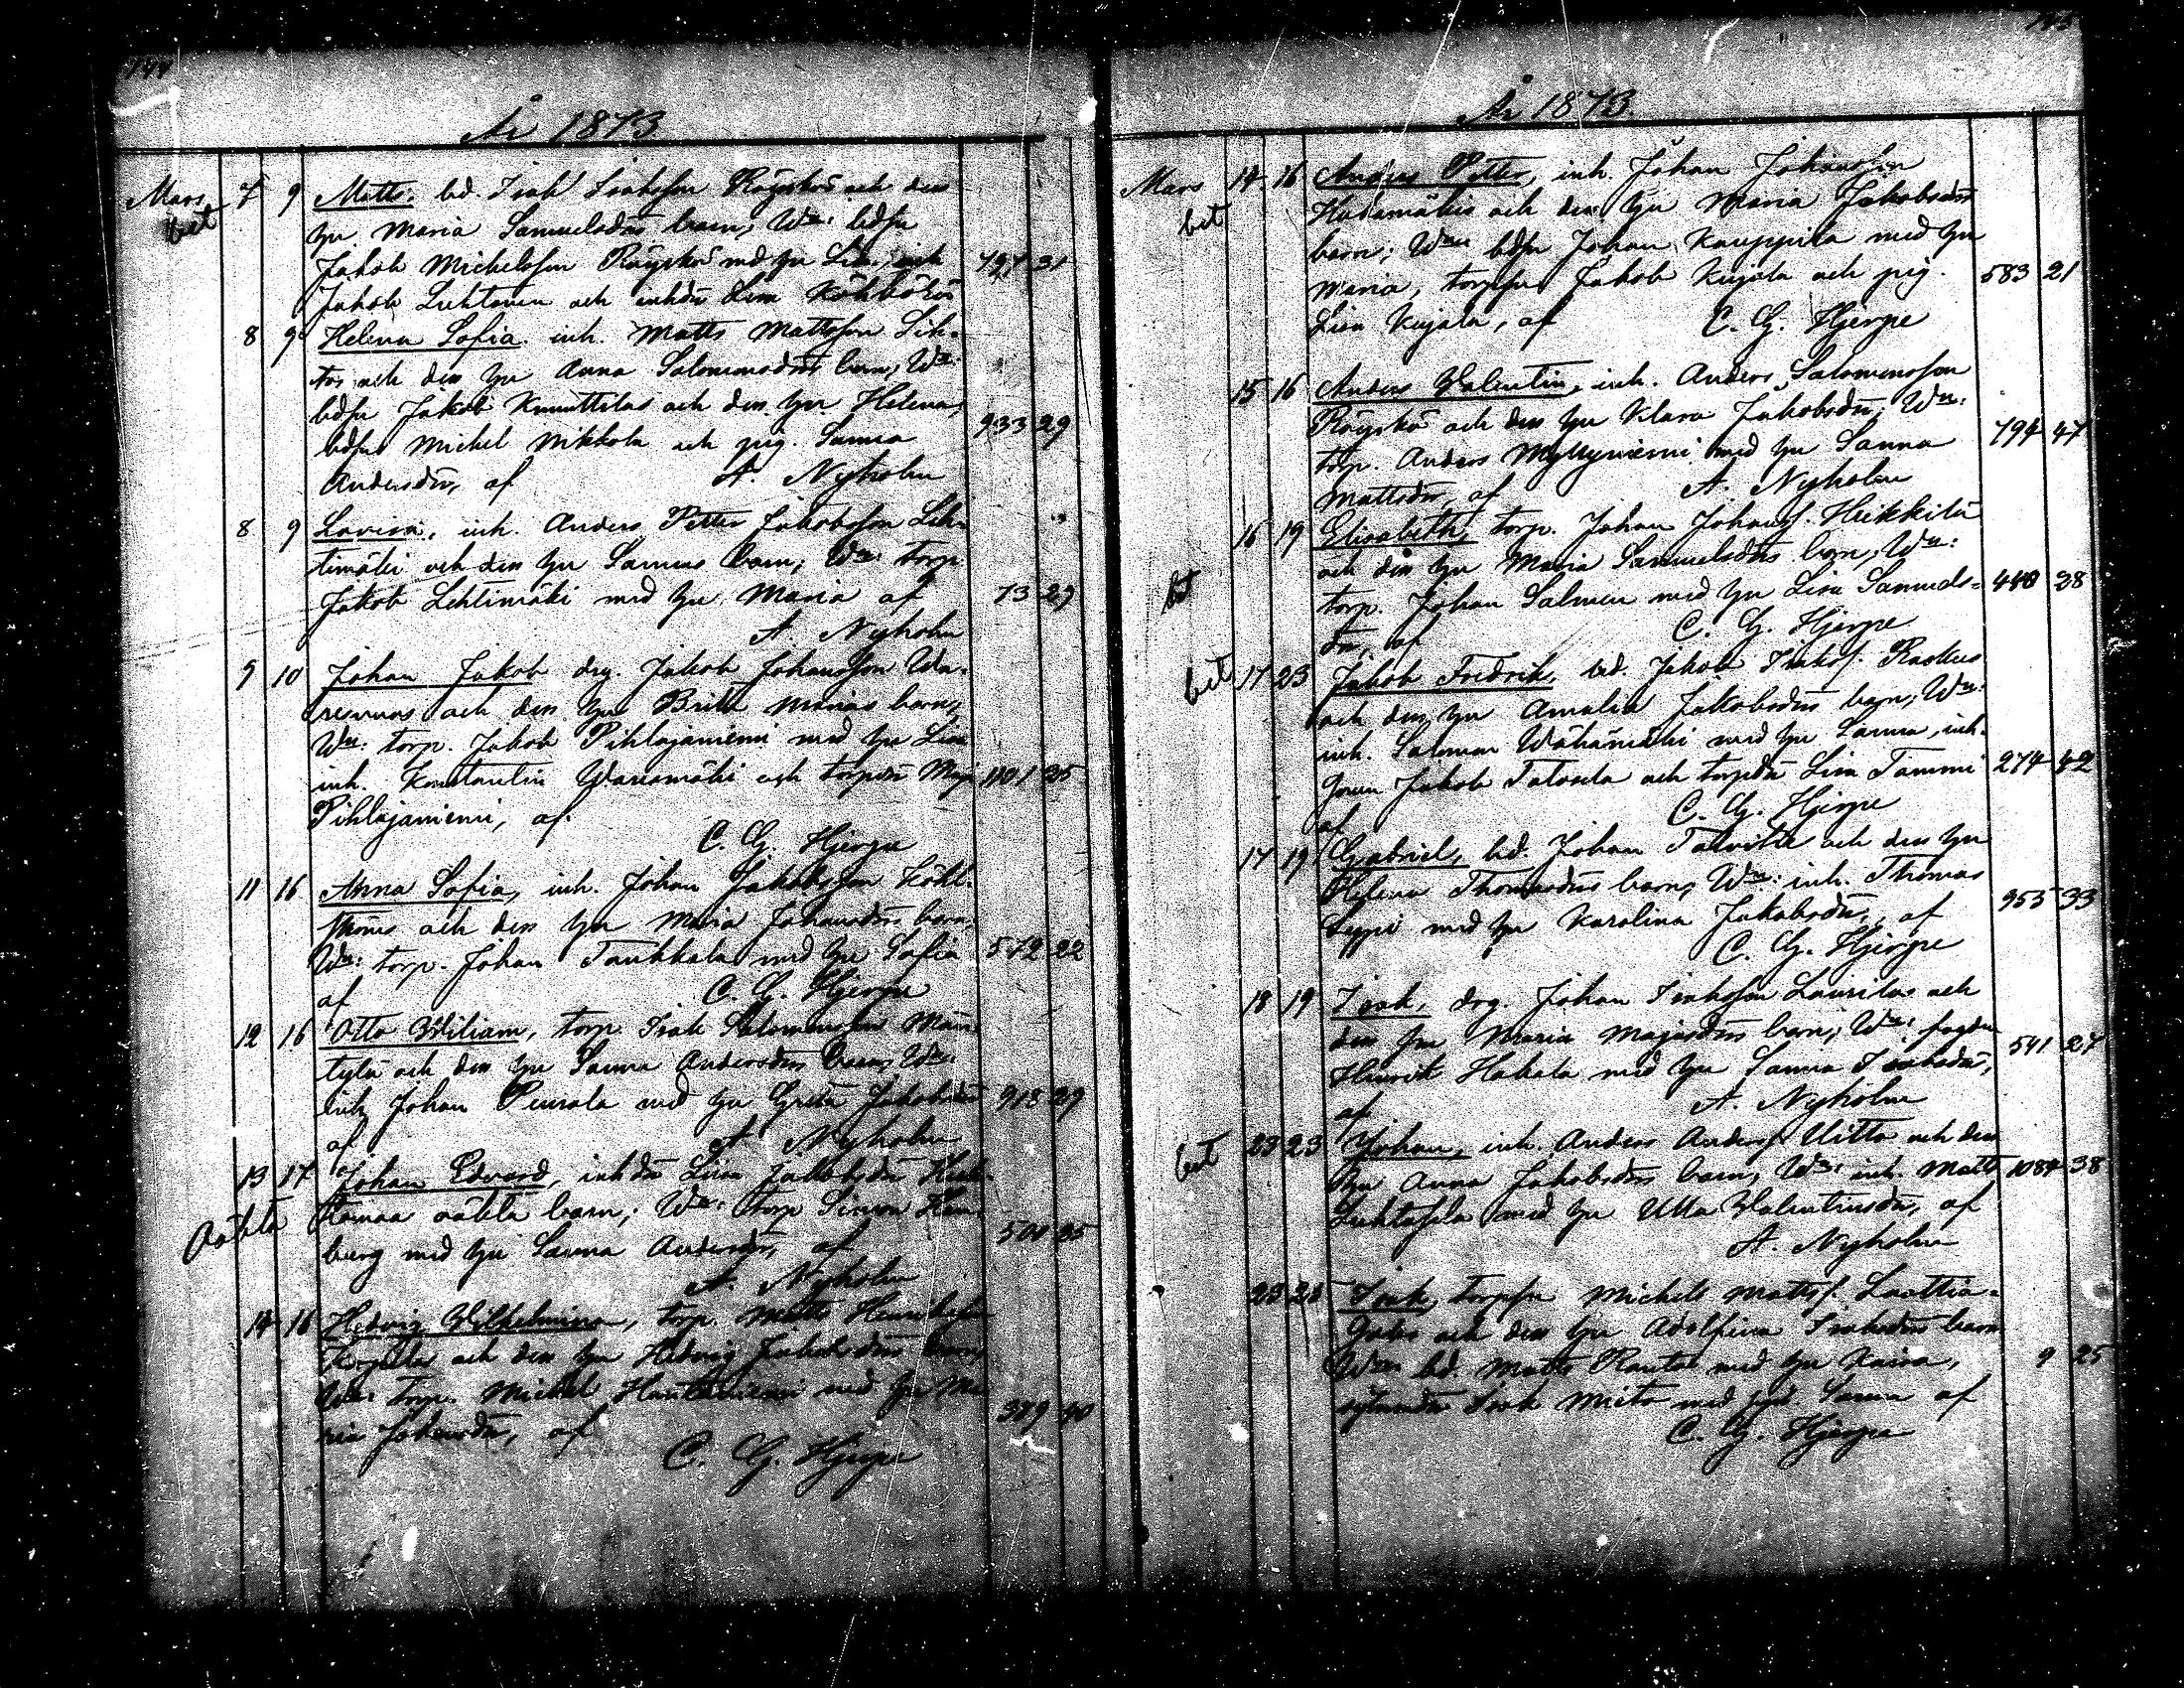 144
År 1873
Mars 7 9 Matts, bd. Isak Isaksson Röyskö och dess
bet hu Maria Samuelsdrs barn; Wn: bdsn
Jakob Michelsson Röyskö md hu Lisa, inh 31
Jakob Luhtanen och inhdn Lisa
8 9 Helena Sofia, inh. Matts Mattsson Leh-
tos och dess hu Anna Salomonsdrs barn; Wn:
bdsn Jakob Knuuttila och dess hu Helena,
bdsn Michel Nikkola och pig. Sanna 933 29
Andersdr, af A. Nyholm
8 9 Lovisa, inh. Anders Petter Jakobsson Leh-
timäki och dess hu Sannas barn; Wn: torp.
Jakob Lehtimäki med hu Maria af 73 29
A. Nyholm
9 10 Johan Jakob drg. Jakob Johansson Wa-
och dess hu Britta Marias barn;
Wn: torp. Jakob Pihlajaniemi med hu Lisa
inh. Konstantin Wainiomäki och torpdn Maja 1101 25
Pihlajaniemi, af.
C. G. Hjerpe
11 16 Anna Sofia, inh. Johan Jakobsson
och dess hu Maria Johansdrs barn;
Wn: torp. Johan Taukkala med hu Sofia 572 22
af C. G. Hjerpe
12 16 Otto Wiliam, torp. Isak Salomonsson Män-
tylä och dess hu Sanna Andersdrs barn; Wn:
inh Johan Peurala med hu Greta Jakobsdr 918 29
af A. Nyholm
13 17 Johan Edvard, inhdn Lisa Jakobsdr
oäkta oäkta barn; Wn: torp Simon
berg med hu Sanna Andersdr, af 501 35
A. Nyholm
14 16 Hedvig Wilhelmina, torp. Matts Henriksson
och dess hu Hedvig Jakobsdrs barn;
Wn: torp. Michel Hautaniemi med hu Ma-
ria Johansdr, af 389 40
C. G. Hjerpe
145
År 1873.
Mars 14 16 Anders Petter, inh. Johan Johansson
bet och dess hu Maria Jakobsdrs
barn; Wn: bdsn Johan Kauppila med hu
Maria, torpsn Jakob Kujala och pig. 583 21
Lisa Kujala, af C. G. Hjerpe
15 16 Anders Valentin, inh. Anders Salomonsson
Röyskö och dess hu Klara Jakobsdr; Wn:
torp. Anders Myllyniemi med hu Sanna 794 47
Mattsdr, af A. Nyholm
16 19 Elisabeth, torp. Johan Johanss. Heikkilä
och dess hu Maria Samuelsdrs barn; Wn:
bet torp. Johan Salmen med hu Lisa Samuels- 440 28
dr, af C. G. Hjerpe
bet 17 23 Jakob Fredrik, bd. Jakob Isakss. Raskus
och dess hu Amalia Jakobsdrs barn; Wn:
inh. Salomon Wähämäki med hu Sanna, inh.
Jakob Talvela och torpdn Lisa Tammi 274 42
af C. G. Hjerpe
17 19 Gabriel, bd. Johan Talvitie och dess hu
Helena Thomasdrs barn; Wn: inh. Thomas
Seppi med hu Karolina Jakobsdr, af 953 33
C. G. Hjerpe
18 19 Isak, drg. Johan Isaksson Laurila och
dess hu Maria Majasdrs barn; Wn:
Henrik Hakala med hu Sanna Isaksdr, 541 27
af A. Nyholm
bet 23 23 Johan, inh. Anders Anderss Uitto och dess
hu Anna Jakobsdrs barn; Wn: inh. Matts 1084 38
Luhtasela med hu Ulla Valentinsdr, af
A. Nyholm
23 25 Isak, torpsn Michels Mattss. Laattia-
och dess hu Adolfina Isaksdrs barn
Wn: bd. Matts Rauta med hu Kaisa, 9 25
Isak Mieto med hu. Sanna af
C. G. Hjerpe